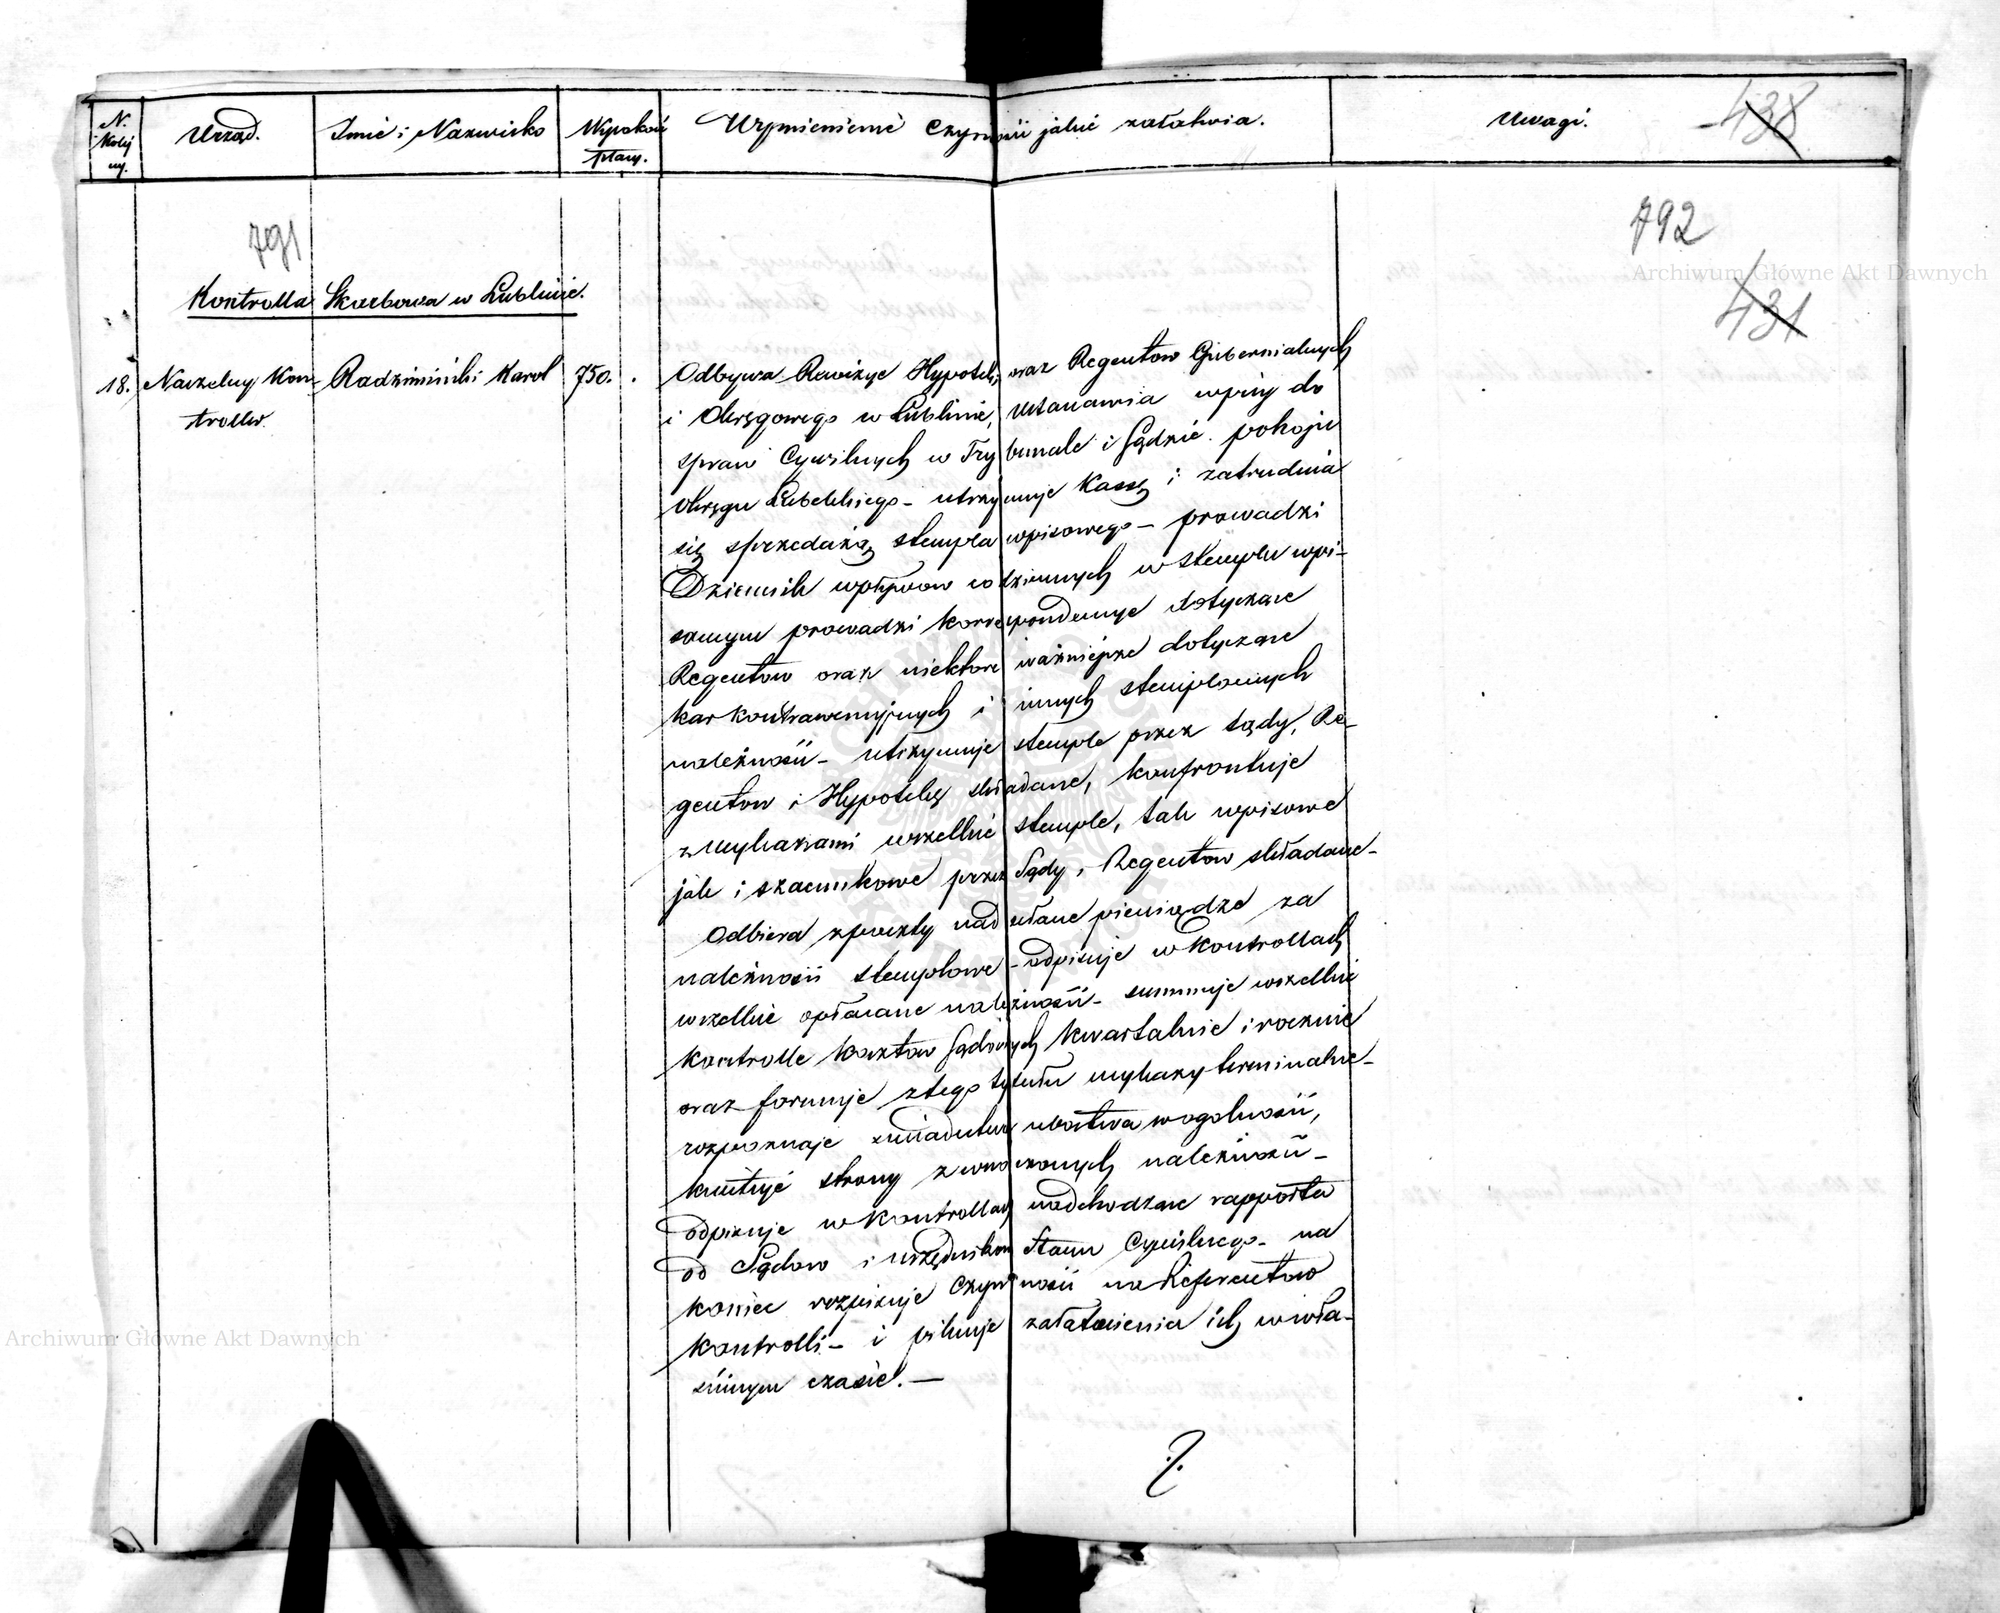 N. Kolej ny.
Urząd.
Imie i Nazwisko
Wysokość płacy.
Wymienienie Czynności jakie załatwia.
Uwagi.
438
791
792
431
Kontrolla Skarbowa w Lublinie.
18. Naczelny Kon-
troller.
Radzimiński Karol
750.
Odbywa Rewizye Hypoteki, oraz Regentów Gubernialnych
i Okręgowego w Lublinie, Ustanawia wpisy do
spraw Cywilnych w Trybunale i Sądzie pokoju
Okręgu Lubelskiego – utrzymuje Kassę i zatrudnia
się sprzedażą stempla wpisowego – prowadzi
Dziennik wpływów codziennych w stemplu wpi-
sowym prowadzi korrespondencye dotyczące
Regentów oraz niektóre ważniejsze dotyczące
kar kontrawencyjnych i innych stemplowych
należności – utrzymuje stemple przez Sądy, Re-
gentów i Hypotekę składane, konfrontuje
z wykazami wszelkie stemple, tak wpisowe
jak i szacunkowe przez Sądy, Regentów składane –
Odbiera z poczty nadesłane pieniądze za
należności stemplowe – odpisuje w kontrollach
wszelkie opłacane należności – summuje wszelkie
kontrolle kosztów Sądowych kwartalnie i rocznie
oraz formuje z tego tytułu wykazy terminalne –
rozpoznaje świadectwa ubóstwa w ogólności,
kwituje strony z wnoszonych należności –
odpisuje w kontrollach nadchodzące rapporta
od Sądów i urzędników Stanu Cywilnego – na
koniec rozpisuje Czynności na Referentów
kontrolli – i pilnuje załatwienia ich w wła-
ściwym czasie. –
Archiwum Główne Akt Dawnych
Archiwum Główne Akt Dawnych